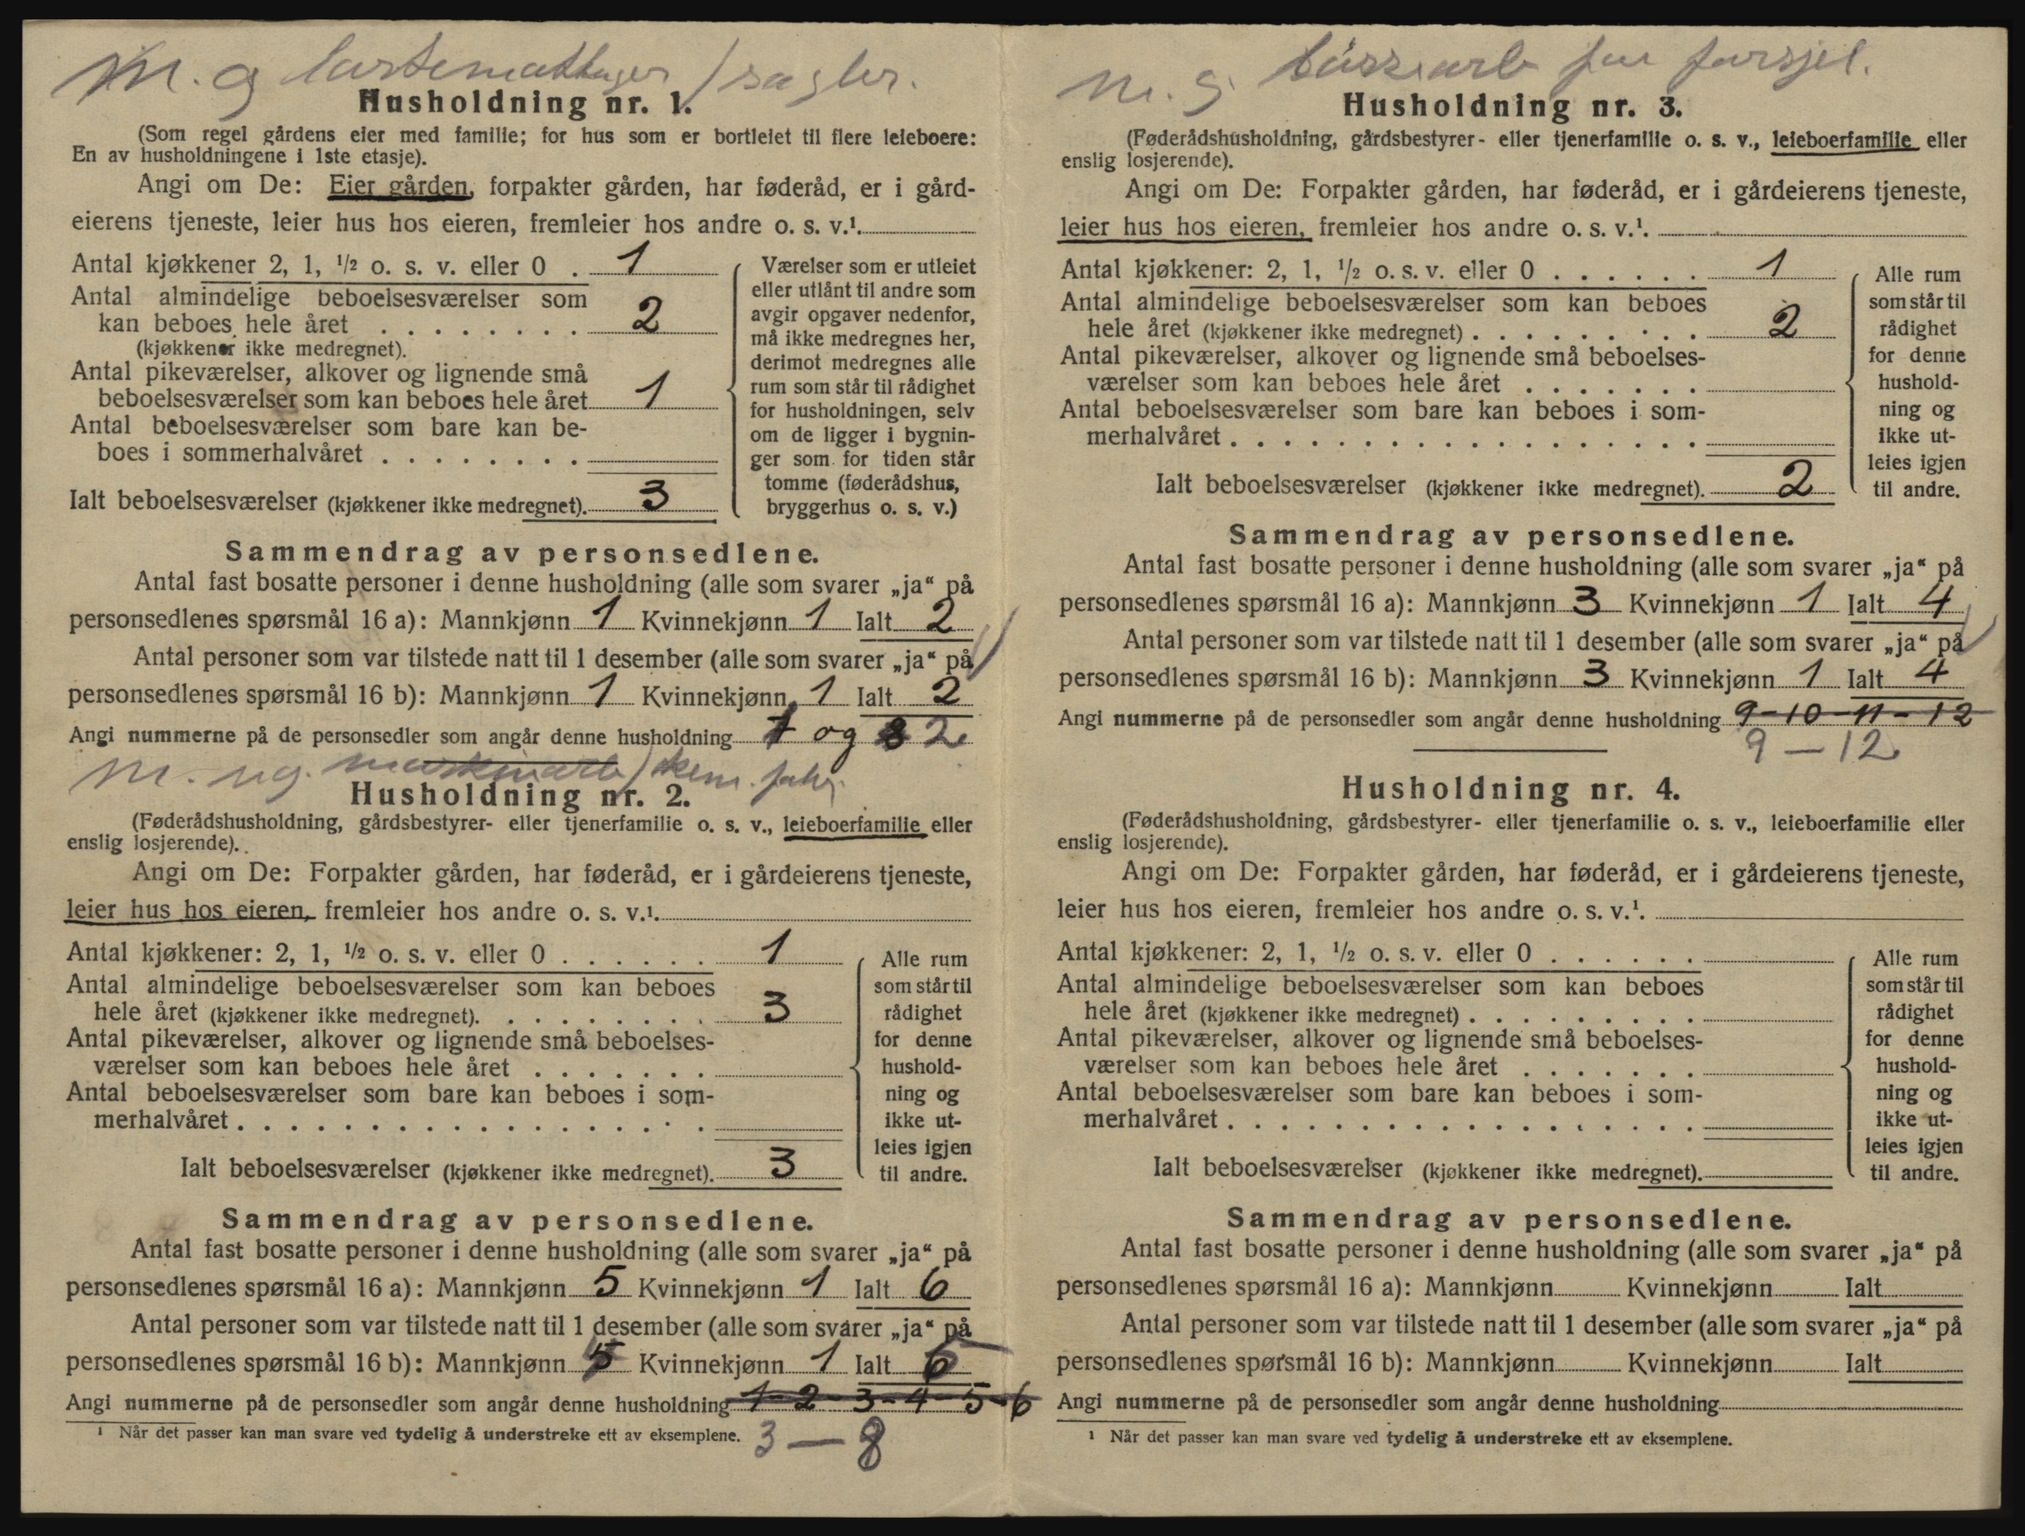 M. g
Husholdning nr. 1.
(Som regel gårdens eier med familie; for hus som er bortleiet til flere leieboere:
En av husholdningene i 1ste etasje).
Angi om De: Eier gården, forpakter gården, har føderåd, er i gård-
eierens tjeneste, leier hus hos eieren, fremleier hos andre o. s. v.¹.
Antal kjøkkener 2, 1, ½ o. s. v. eller 0 . 1
Antal almindelige beboelsesværelser som
kan beboes hele året . . . . . . . . 2
(kjøkkener ikke medregnet).
Antal pikeværelser, alkover og lignende små
beboelsesværelser som kan beboes hele året 1
Antal beboelsesværelser som bare kan be-
boes i sommerhalvåret . . . . . . . .
Ialt beboelsesværelser (kjøkkener ikke medregnet). 3
Værelser som er utleiet
eller utlånt til andre som
avgir opgaver nedenfor,
må ikke medregnes her,
derimot medregnes alle
rum som står til rådighet
for husholdningen, selv
om de ligger i bygnin-
ger som for tiden står
tomme (føderådshus,
bryggerhus o. s. v.)
Sammendrag av personsedlene.
Antal fast bosatte personer i denne husholdning (alle som svarer „ja“ på
personsedlenes spørsmål 16 a): Mannkjønn 1 Kvinnekjønn 1 Ialt 2
Antal personer som var tilstede natt til 1 desember (alle som svarer „ja“ på
personsedlenes spørsmål 16 b): Mannkjønn 1 Kvinnekjønn 1 Ialt 2
Angi nummerne på de personsedler som angår denne husholdning 1 og 2
M.
Husholdning nr. 2.
(Føderådshusholdning, gårdsbestyrer- eller tjenerfamilie o. s. v., leieboerfamilie eller
enslig losjerende).
Angi om De: Forpakter gården, har føderåd, er i gårdeierens tjeneste,
leier hus hos eieren, fremleier hos andre o. s. v.¹.
Antal kjøkkener: 2, 1, ½ o. s. v. eller 0 . . . . . . 1
Antal almindelige beboelsesværelser som kan beboes
hele året (kjøkkener ikke medregnet). . . . . . . . . 3
Antal pikeværelser, alkover og lignende små beboelses-
værelser som kan beboes hele året . . . . . . .
Antal beboelsesværelser som bare kan beboes i som-
merhalvåret . . . . . . . . . . . . . . . . . .
Ialt beboelsesværelser (kjøkkener ikke medregnet). 3
Alle rum
som står til
rådighet
for denne
hushold-
ning og
ikke ut-
leies igjen
til andre.
Sammendrag av personsedlene.
Antal fast bosatte personer i denne husholdning (alle som svarer „ja“ på
personsedlenes spørsmål 16 a): Mannkjønn 5 Kvinnekjønn 1 Ialt 6
Antal personer som var tilstede natt til 1 desember (alle som svarer „ja“ på
personsedlenes spørsmål 16 b): Mannkjønn Kvinnekjønn 1 Ialt
Angi nummerne på de personsedler som angår denne husholdning 1-2-3-4-5-6
¹ Når det passer kan man svare ved tydelig å understreke ett av eksemplene. 3 — 8
for forsjel.
Husholdning nr. 3.
(Føderådshusholdning, gårdsbestyrer- eller tjenerfamilie o. s. v., leieboerfamilie eller
enslig losjerende).
Angi om De: Forpakter gården, har føderåd, er i gårdeierens tjeneste,
leier hus hos eieren, fremleier hos andre o. s. v.¹.
Antal kjøkkener: 2, 1, ½ o. s. v. eller 0 . . . . . . 1
Antal almindelige beboelsesværelser som kan beboes
hele året (kjøkkener ikke medregnet) . . . . . . . . . 2
Antal pikeværelser, alkover og lignende små beboelses-
værelser som kan beboes hele året . . . . . . .
Antal beboelsesværelser som bare kan beboes i som-
merhalvåret . . . . . . . . . . . . . . . . . .
Ialt beboelsesværelser (kjøkkener ikke medregnet). 2
Alle rum
som står til
rådighet
for denne
hushold-
ning og
ikke ut-
leies igjen
til andre.
Sammendrag av personsedlene.
Antal fast bosatte personer i denne husholdning (alle som svarer „ja“ på
personsedlenes spørsmål 16 a): Mannkjønn 3 Kvinnekjønn 1 Ialt 4
Antal personer som var tilstede natt til 1 desember (alle som svarer „ja“ på
personsedlenes spørsmål 16 b): Mannkjønn 3 Kvinnekjønn 1 Ialt 4
Angi nummerne på de personsedler som angår denne husholdning 9-10-11-12
9 — 12
Husholdning nr. 4.
(Føderådshusholdning, gårdsbestyrer- eller tjenerfamilie o. s. v., leieboerfamilie eller
enslig losjerende).
Angi om De: Forpakter gården, har føderåd, er i gårdeierens tjeneste,
leier hus hos eieren, fremleier hos andre o. s. v.¹.
Antal kjøkkener: 2, 1, ½ o. s. v. eller 0 . . . . . .
Antal almindelige beboelsesværelser som kan beboes
hele året (kjøkkener ikke medregnet) . . . . . . . . .
Antal pikeværelser, alkover og lignende små beboelses-
værelser som kan beboes hele året . . . . . . .
Antal beboelsesværelser som bare kan beboes i som-
merhalvåret . . . . . . . . . . . . . . . . . .
Ialt beboelsesværelser (kjøkkener ikke medregnet).
Alle rum
som står til
rådighet
for denne
hushold-
ning og
ikke ut-
leies igjen
til andre.
Sammendrag av personsedlene.
Antal fast bosatte personer i denne husholdning (alle som svarer „ja“ på
personsedlenes spørsmål 16 a): Mannkjønn Kvinnekjønn Ialt
Antal personer som var tilstede natt til 1 desember (alle som svarer „ja“ på
personsedlenes spørsmål 16 b): Mannkjønn Kvinnekjønn Ialt
Angi nummerne på de personsedler som angår denne husholdning
¹ Når det passer kan man svare ved tydelig å understreke ett av eksemplene.